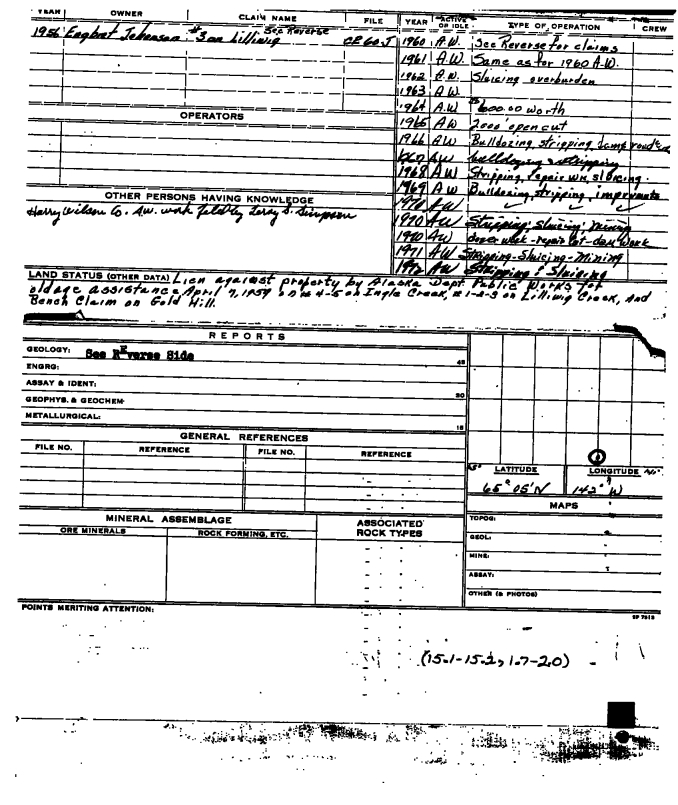 YEAR OWNER CLAIM NAME FILE YEAR ACTIVE OR IDLE TYPE OF OPERATION CREW
1956 Engbret Johanson #3 on Lilliwig See Reverse CE 60-J 1960 A.W. See Reverse for claims
1961 A.W. Same as for 1960 A.W.
1962 A.W. Sluicing overburden
1963 A.W.
1964 A.W. $600.00 worth
OPERATORS
1965 A W 2000' open cut
1966 A.W. Bulldozing, stripping, camp
1967 A W bulldozing & stripping
1968 A W Stripping, repair wk, sluicing.
1969 A W Bulldozing, stripping,
OTHER PERSONS HAVING KNOWLEDGE
1970 A W
Harry Wilson Co. A.W. work Leroy S. Simpson
1970 A W Stripping, Sluicing, Mining
1970 A W dozer work - repair
1971 A W Stripping-Sluicing-Mining
1972 A W Stripping & Sluicing
LAND STATUS (OTHER DATA) Lien against property by Alaska Dept. Public Works for
old age assistance April 7, 1959 on # 4-5 on Ingle Creek, # 1-2-3 on Lilliwig Creek, and
Bench Claim on Gold Hill.
REPORTS
GEOLOGY: See Reverse Side
ENGRG:
ASSAY & IDENT:
GEOPHYS. & GEOCHEM
METALLURGICAL:
GENERAL REFERENCES
FILE NO. REFERENCE FILE NO. REFERENCE
LATITUDE LONGITUDE
65° 05' N 142° W
MAPS
MINERAL ASSEMBLAGE ASSOCIATED ROCK TYPES
ORE MINERALS ROCK FORMING, ETC.
TOPOG:
GEOL:
MINE:
ASSAY:
OTHER (& PHOTOS)
POINTS MERITING ATTENTION:
(15.1-15.2, 1.7-2.0)